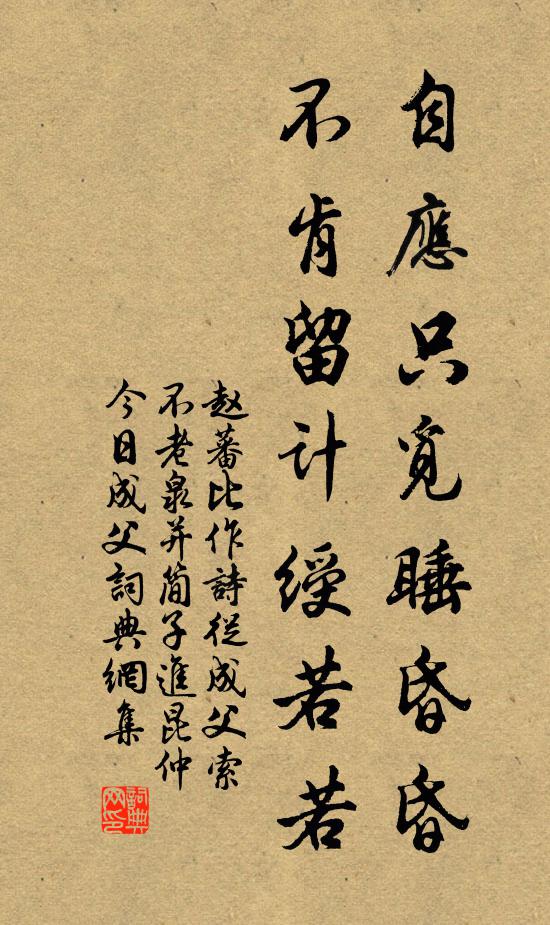 自應只覓睡昏昏
不肯留計綬若若
赵蕃比作詩從成父索
不老泉并簡子進昆仲
今日成父詞典網集
詞典网印